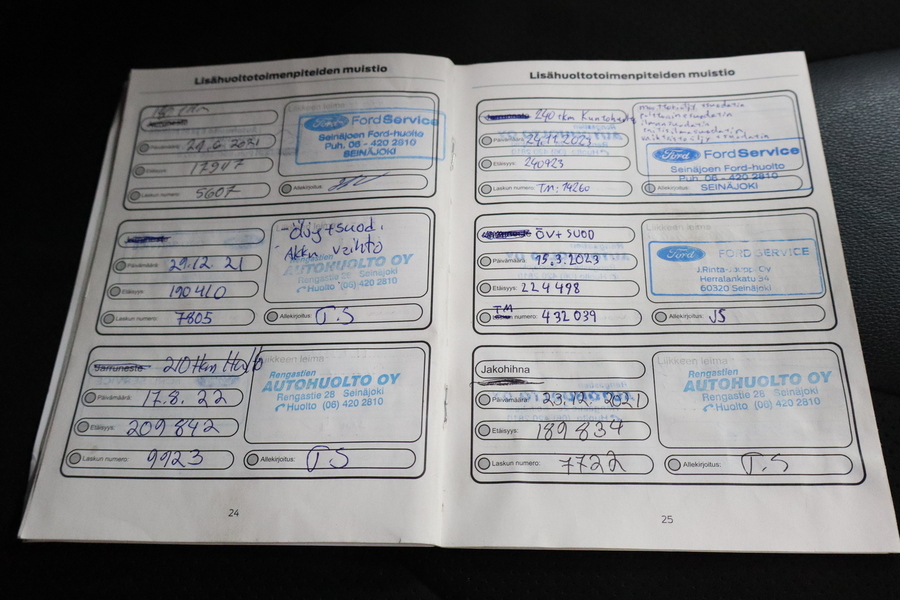 Lisähuoltotoimenpiteiden muistio
Liikkeen leima
Päivämäärä:
Etäisyys:
17947
Laskun numero:
5607
Ford Ford Service
Seinäjoen Ford-huolto
Puh. 06 - 420 2810
SEINÄJOKI
Allekirjoitus:
Päivämäärä:
29.12. 21
Etäisyys:
190410
Laskun numero:
7805
Öljy+suod.
Akku vaihto
Rengastien
AUTOHUOLTO OY
Rengastie 28 Seinäjoki
Huolto (06) 420 2810
Allekirjoitus:
T.S
Jarruneste
210tkm Huolto
Päivämäärä:
17.8. 22
Etäisyys:
209842
Laskun numero:
9923
Liikkeen leima
Rengastien
AUTOHUOLTO OY
Rengastie 28 Seinäjoki
Huolto (06) 420 2810
Allekirjoitus:
T.S
24
Lisähuoltotoimenpiteiden muistio
240 tkm
Päivämäärä:
24.11.2023
Etäisyys:
240923
Laskun numero:
TM: 14260
Ford Ford Service
Seinäjoen Ford-huolto
Puh. 06 - 420 2810
SEINÄJOKI
Allekirjoitus:
ÖV+ SUOD
Päivämäärä:
15.3.2023
Etäisyys:
224498
TM
numero:
432039
Liikkeen leima
Ford FORD SERVICE
J.Rinta-Jouppi Oy
Herralankatu 54
60320 Seinäjoki
Allekirjoitus:
JS
Jakohihna
Päivämäärä:
23.12. 2021
Etäisyys:
189834
Laskun numero:
7722
Liikkeen leima
Rengastien
AUTOHUOLTO OY
Rengastie 28 Seinäjoki
Huolto (06) 420 2810
Allekirjoitus:
T.S
25